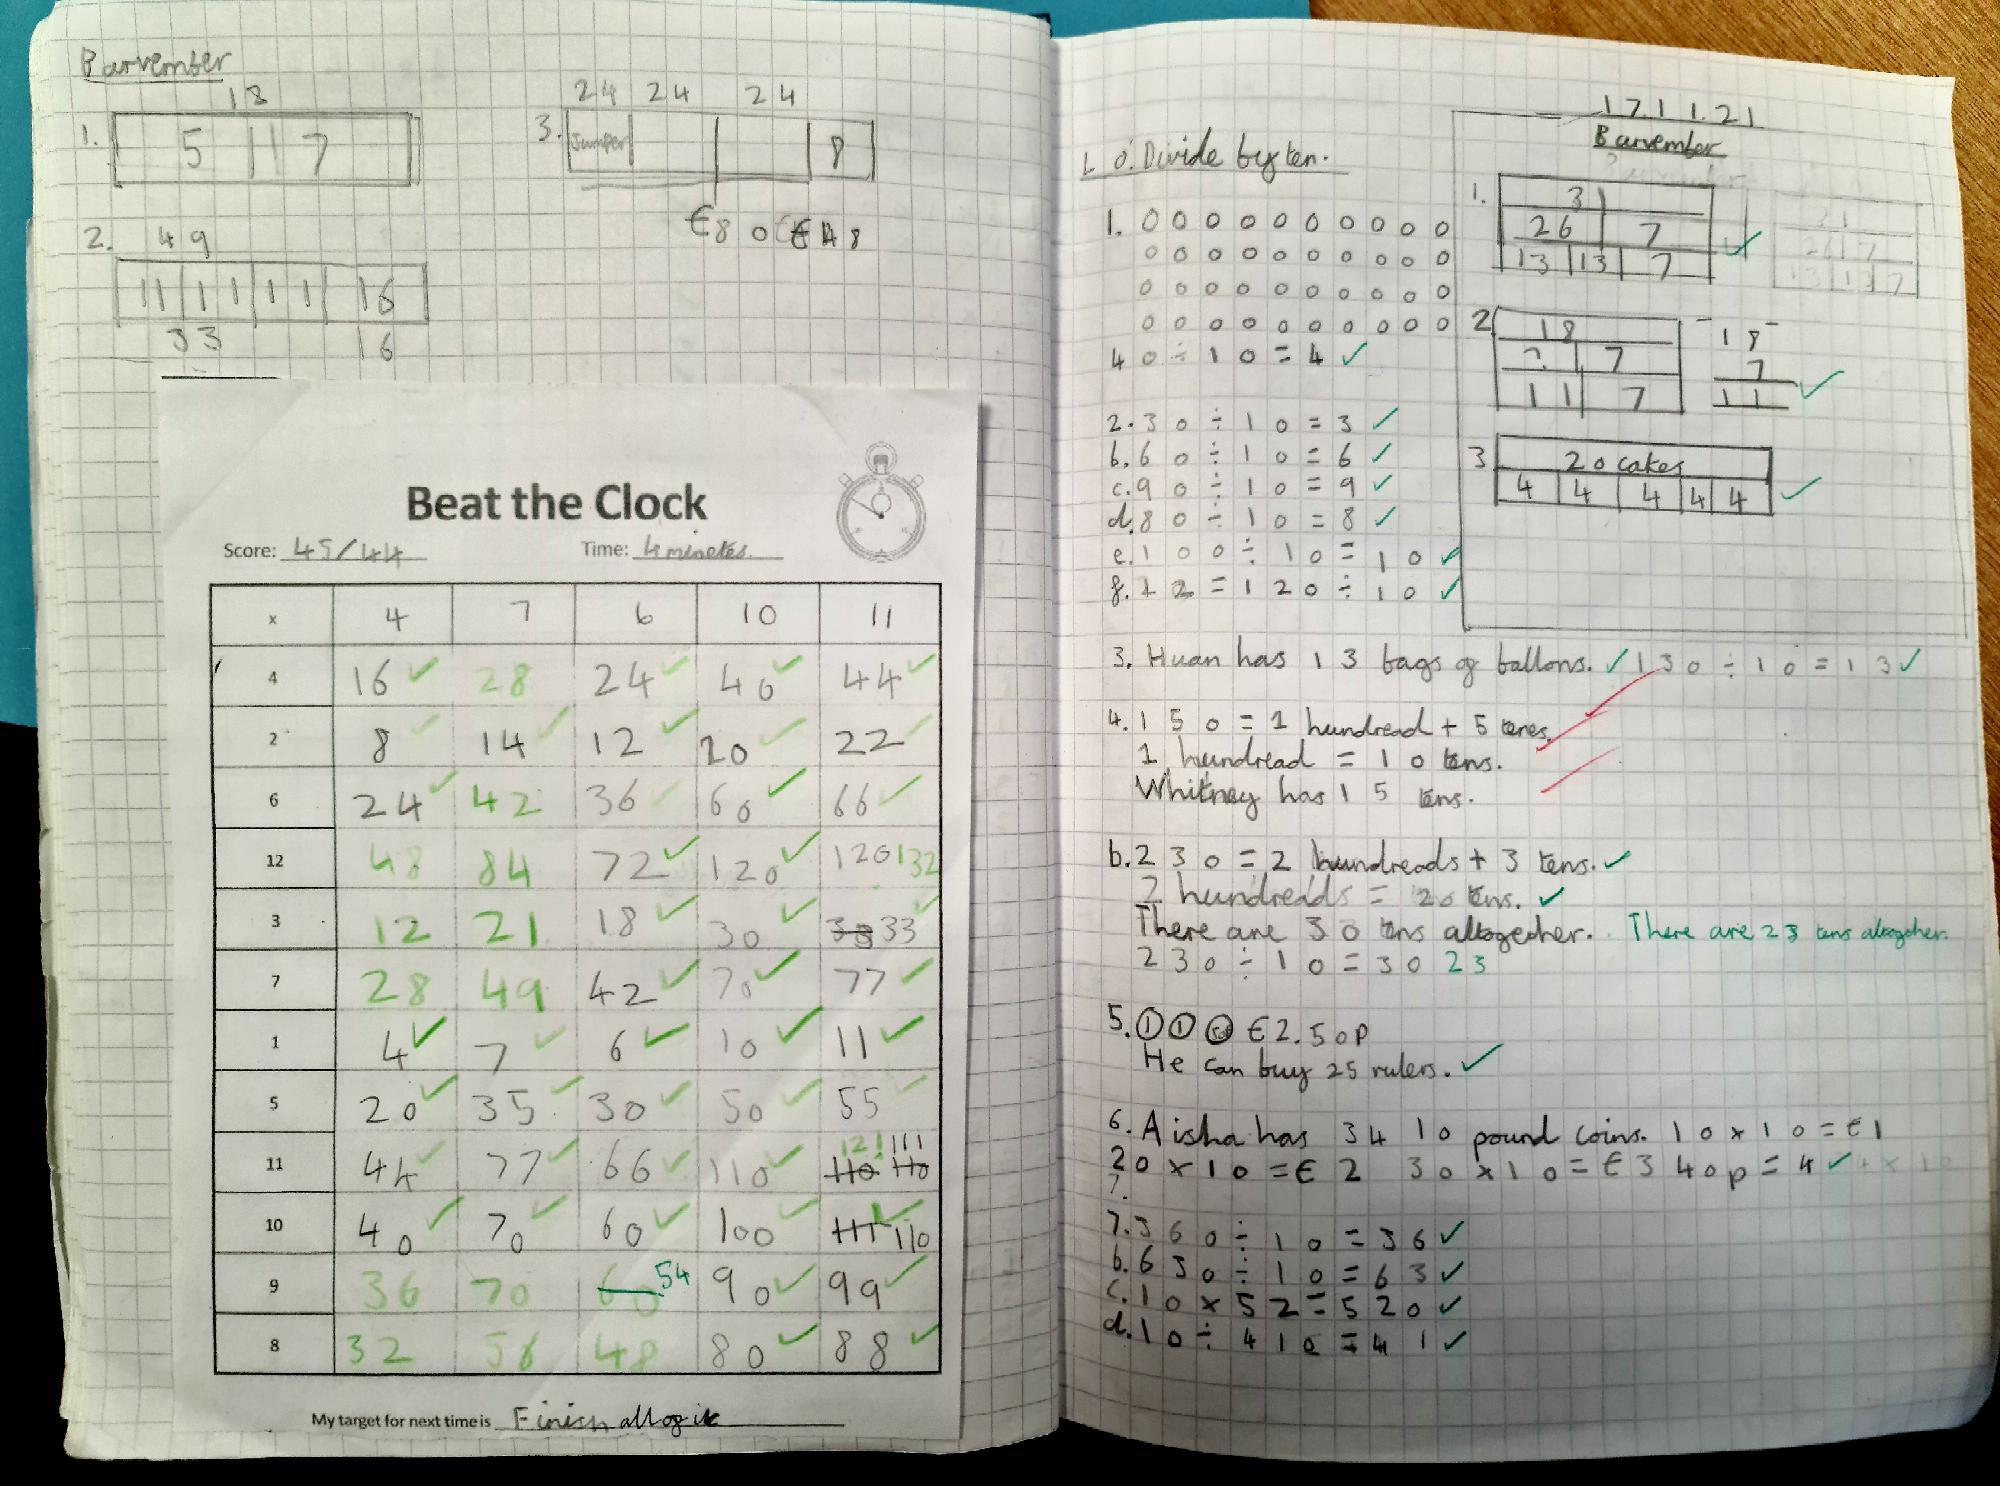 Barvember
18
1. 5 11 7
2. 49
11 11 11 16
33 16
24 24 24
3. Jumper 8
€80
Beat the Clock
Score: 45/44 Time: 4 minetes.
x 4 7 6 10 11
4 16 28 24 40 44
2 8 14 12 20 22
6 24 42 36 60 66
12 48 84 72 120 120 132
3 12 21 18 30 33 33
7 28 49 42 70 77
1 4 7 6 10 11
5 20 35 30 50 55
11 44 77 66 110 110 110 121 111
10 40 70 60 100 111 110
9 36 70 60 54 90 99
8 32 56 48 80 88
My target for next time is Finish all of it
17.11.21
Barvember
1. 3
26 7
13 13 7
2 18
? 7
11 7
18
7
11
3 20 cakes
4 4 4 4 4
L O: Divide by ten.
1. 0 0 0 0 0 0 0 0 0 0
0 0 0 0 0 0 0 0 0 0
0 0 0 0 0 0 0 0 0 0
0 0 0 0 0 0 0 0 0 0
40 ÷ 10 = 4
2. 30 ÷ 10 = 3
b. 60 ÷ 10 = 6
c. 90 ÷ 10 = 9
d. 80 ÷ 10 = 8
e. 100 ÷ 10 = 10
f. 12 = 120 ÷ 10
3. Huan has 13 bags of ballons. 130 ÷ 10 = 13
4. 150 = 1 hundread + 5 tenes.
1 hundread = 10 tens.
Whitney has 15 tens.
b. 230 = 2 hundreads + 3 tens.
2 hundreads = 20 tens.
There are 30 tens altogether. There are 23 tens altogther.
230 ÷ 10 = 30 23
5. 1 1 50 €2.50p
He can buy 25 rulers.
6. Aisha has 34 10 pound coins. 10 x 10 = €1
20 x 10 = €2 30 x 10 = €3 40p = 4
7.
7. 360 ÷ 10 = 36
b. 630 ÷ 10 = 63
c. 10 x 52 = 520
d. 10 ÷ 410 = 41